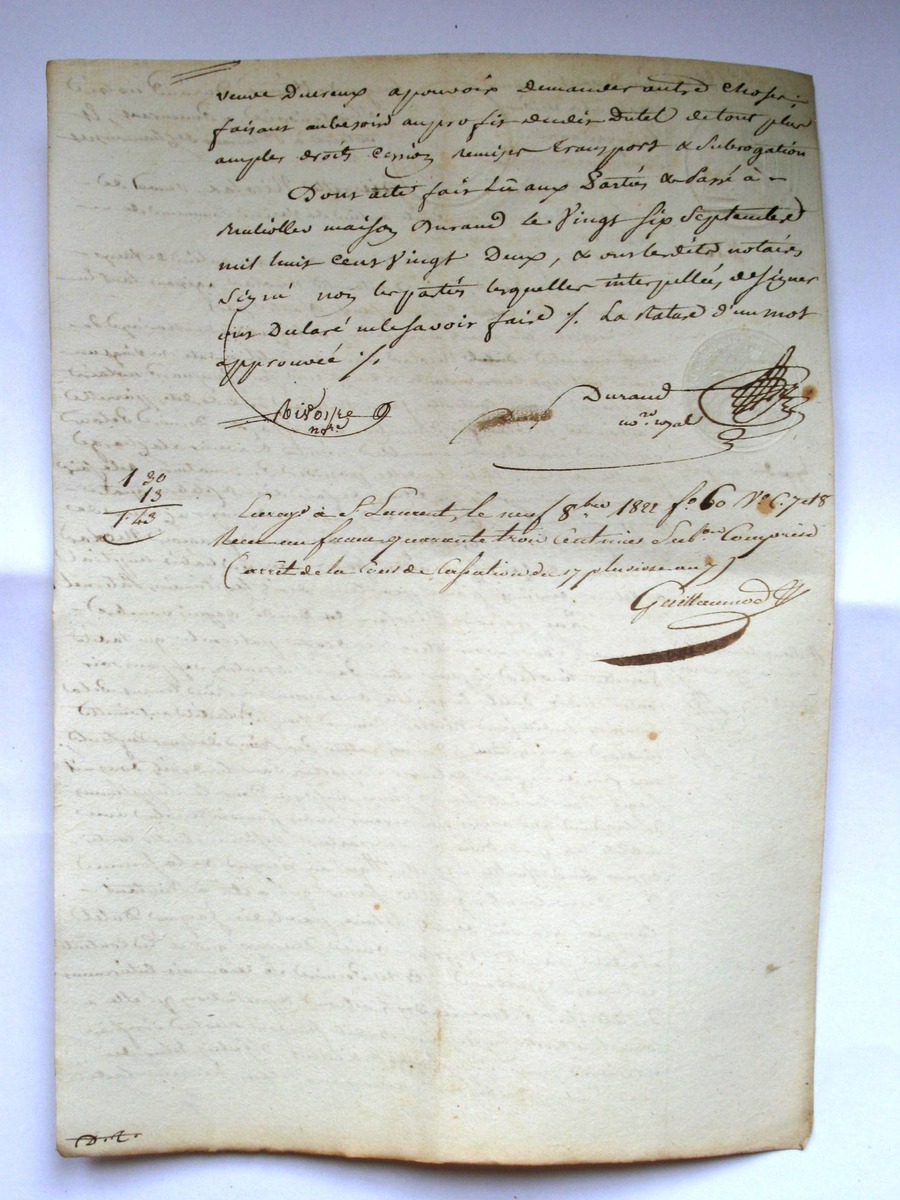 veuve Ducreux a pouvoir demander autre chose;
faisant au besoin au profit dudit Dutel de tous plus
amples droits cession remise transport & subrogation
Dont acte fait Lû aux Parties & Passé à
maison Durand le Vingt six Septembre
mil huit cent Vingt Deux, & ont lesdits notaires
Signé non les parties lesquelles interpellées de signer
ont Declaré ne le savoir faire %. La rature d'un mot
approuveé %.
Durand
no.re royal
no.re
1 30
13
1. 43
à St Laurent, le neuf 8.bre 1822 f.o 60 V.o C. 7 et 8
Reçu un franc quarante trois Centimes Sub.on Comprise
(arrêt de la Cour de Cassation du 17 pluviose an 7)
Guillaumod